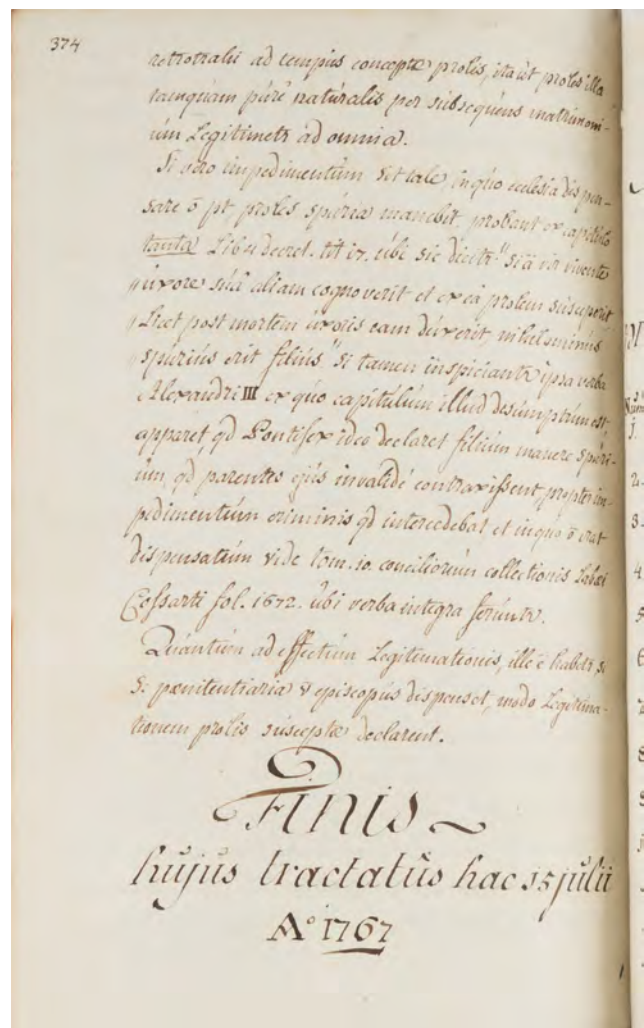 374
retrotrahi ad tempus conceptæ prolis, itaut proles illa
tamquam purè naturalis per subsequens matrimoni-
um Legitimetr ad omnia.
Si vero impedimentum sit tale in quo ecclesia dispen-
sare õ pt proles spuria manebit. probant ex capitulo
tanta Lib 4 decret. tit 17. ubi sic dicitr " si a vir vivente
" uxore suâ aliam cognoverit et ex eâ prolem susceperit
" Licet post mortem uxoris eam duxerit, nihilominus
spurius erit filius " si tamen inspiciantr ipsa verba
Alexandri III ex quo capitulum illud desumptum est
apparet qd Pontifex ideo declaret filium manere spuri-
um, qd parentes ejus invalidé contraxissent propter im-
pedimentum criminis qd intercedebat et in quo õ erat
dispensatum vide tom. 10. conciliorum collectionis Labæi
Cossarti fol. 1672. ubi verba integra feruntr.
Quantum ad effectum Legitimationis, ille ē habetr si
S. pænitentiaria v episcopus dispenset, modo Legitima-
tionem prolis susceptæ declarent.
Finis
hujus tractatus hac 15 julii
A° 1767